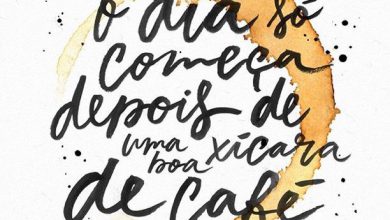 o dia só
começa
depois de
uma boa xícara
de café